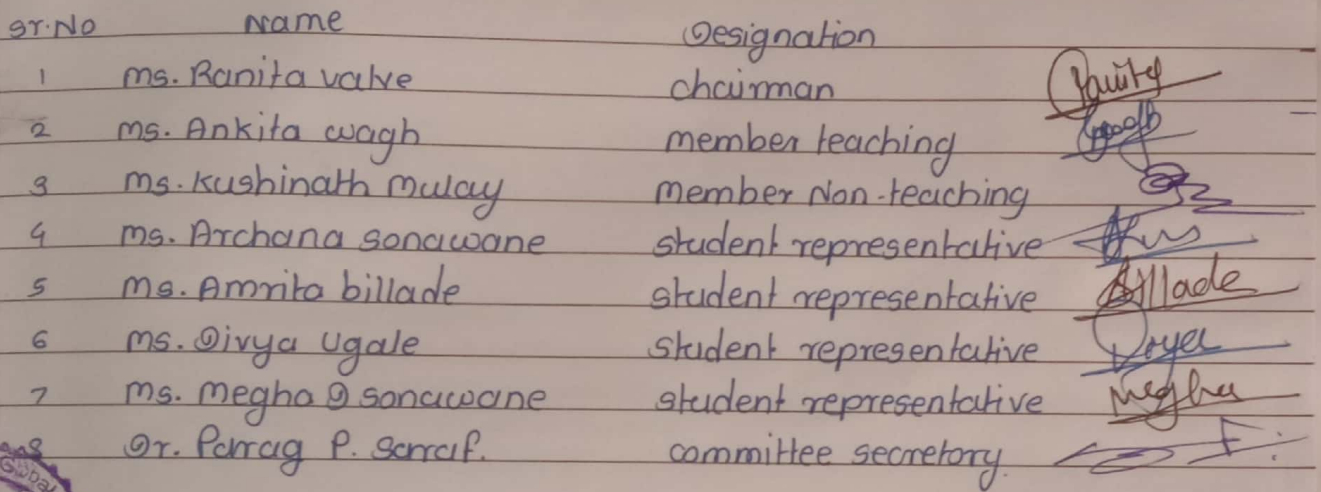 Sr.No Name Designation
1 Ms. Ranita valve chairman
2 Ms. Ankita wagh member teaching
3 Ms. Kushinath Mulay member Non-teaching
4 Ms. Archana Sonawane student representative
5 Ms. Amrita billade student representative Billade
6 Ms. Divya Ugale student representative
7 Ms. Megha D Sonawane student representative Megha
8 Dr. Parrag P. Sarraf. committee secretory.
Global